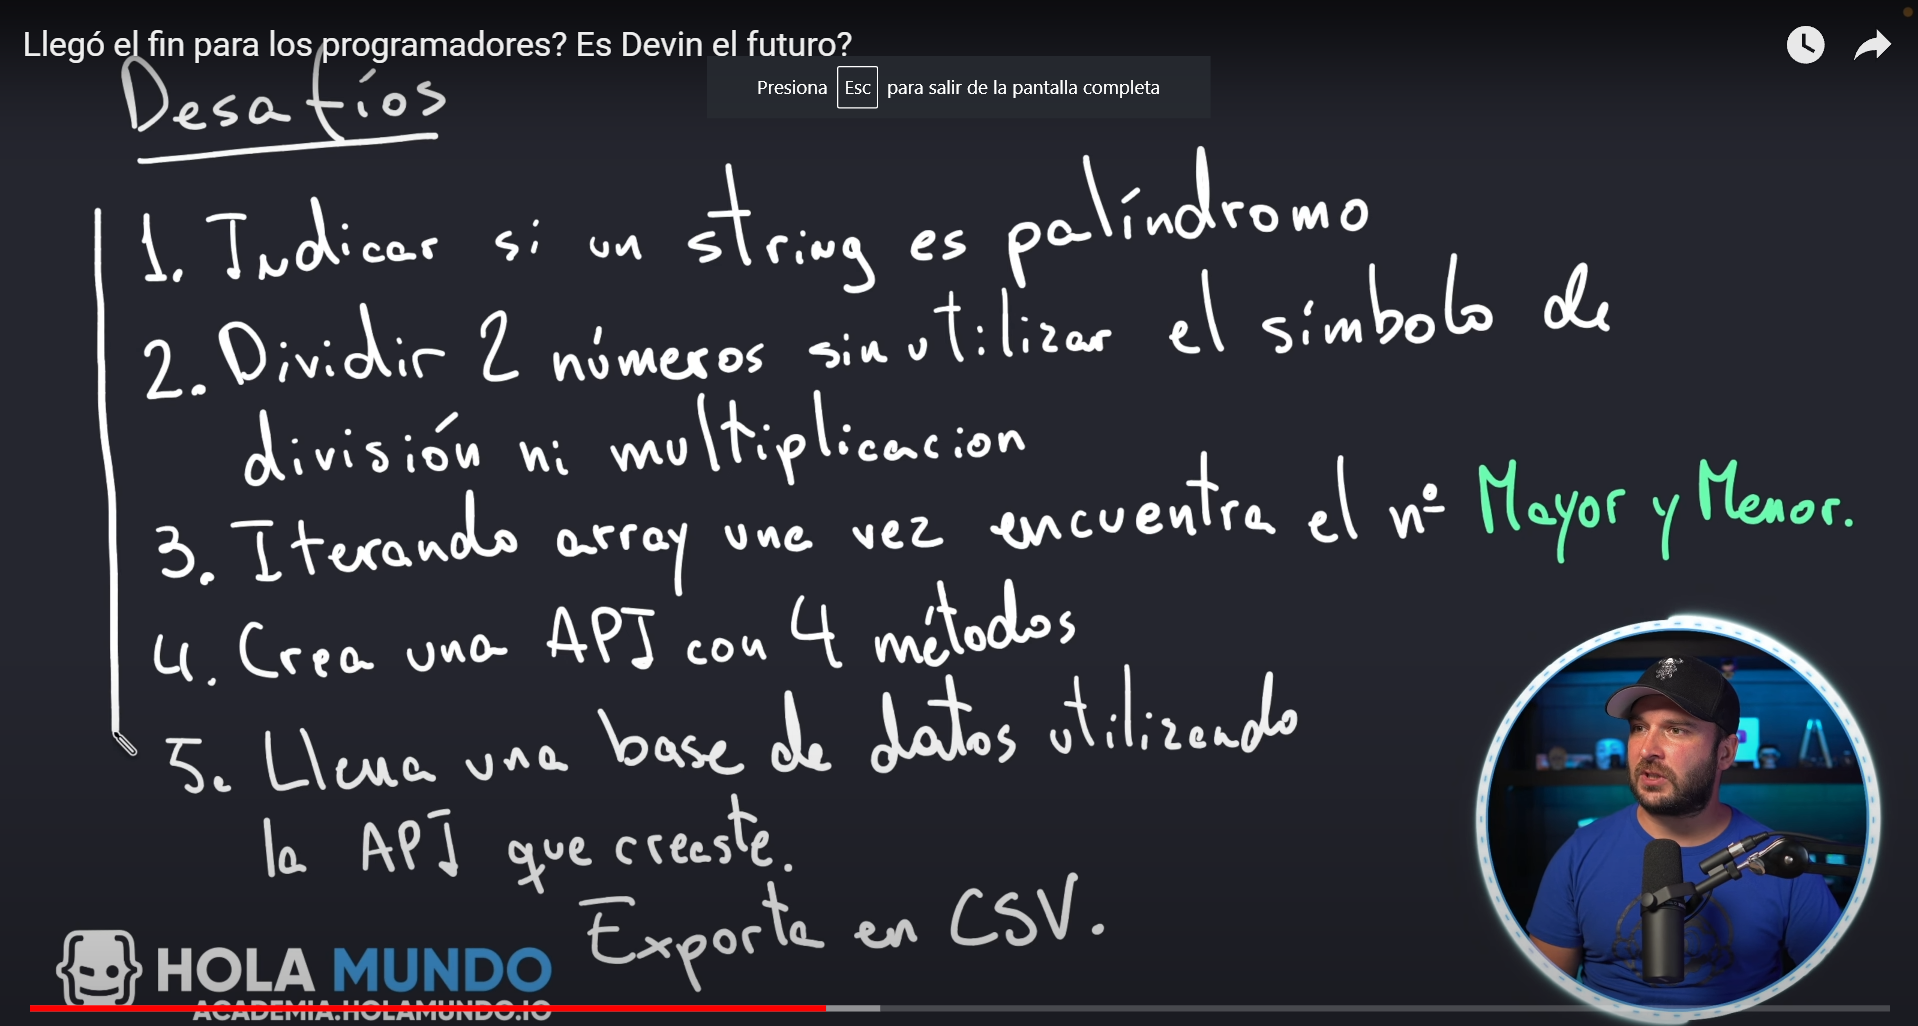 Llegó el fin para los programadores? Es Devin el futuro?
Presiona Esc para salir de la pantalla completa
Desafíos
1. Indicar si un string es palíndromo
2. Dividir 2 números sin utilizar el símbolo de
división ni multiplicacion
3. Iterando array una vez encuentra el nº Mayor y Menor.
4. Crea una API con 4 métodos
5. Llena una base de datos utilizando
la API que creaste.
Exporta en CSV.
HOLA MUNDO
ACADEMIA.HOLAMUNDO.IO